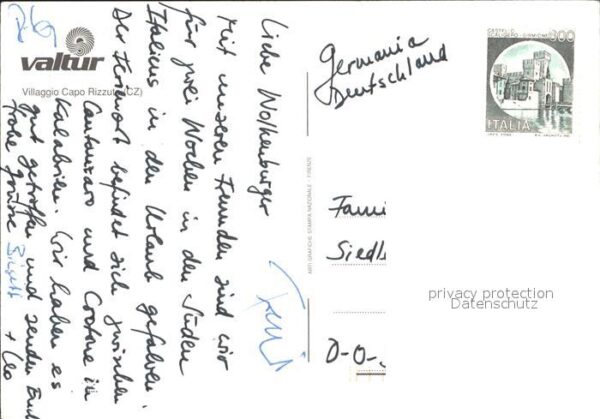 valtur
Villaggio Capo Rizzuto (CZ)
Liebe Wolkenburger
Mit unseren Freunden sind wir
für zwei Wochen in den Süden
Italiens in den Urlaub gefahren.
Der Ferienort befindet sich zwischen
Cantanzaro und Crotone in
Kalabrien. Wir haben es
gut getroffen und senden Euch
frohe Grüsse
+ Leo
ARTI GRAFICHE STAMPA NAZIONALE - FIRENZE
Germania
Deutschland
800
ITALIA
Fami
Siedl
D-O-
privacy protection
Datenschutz